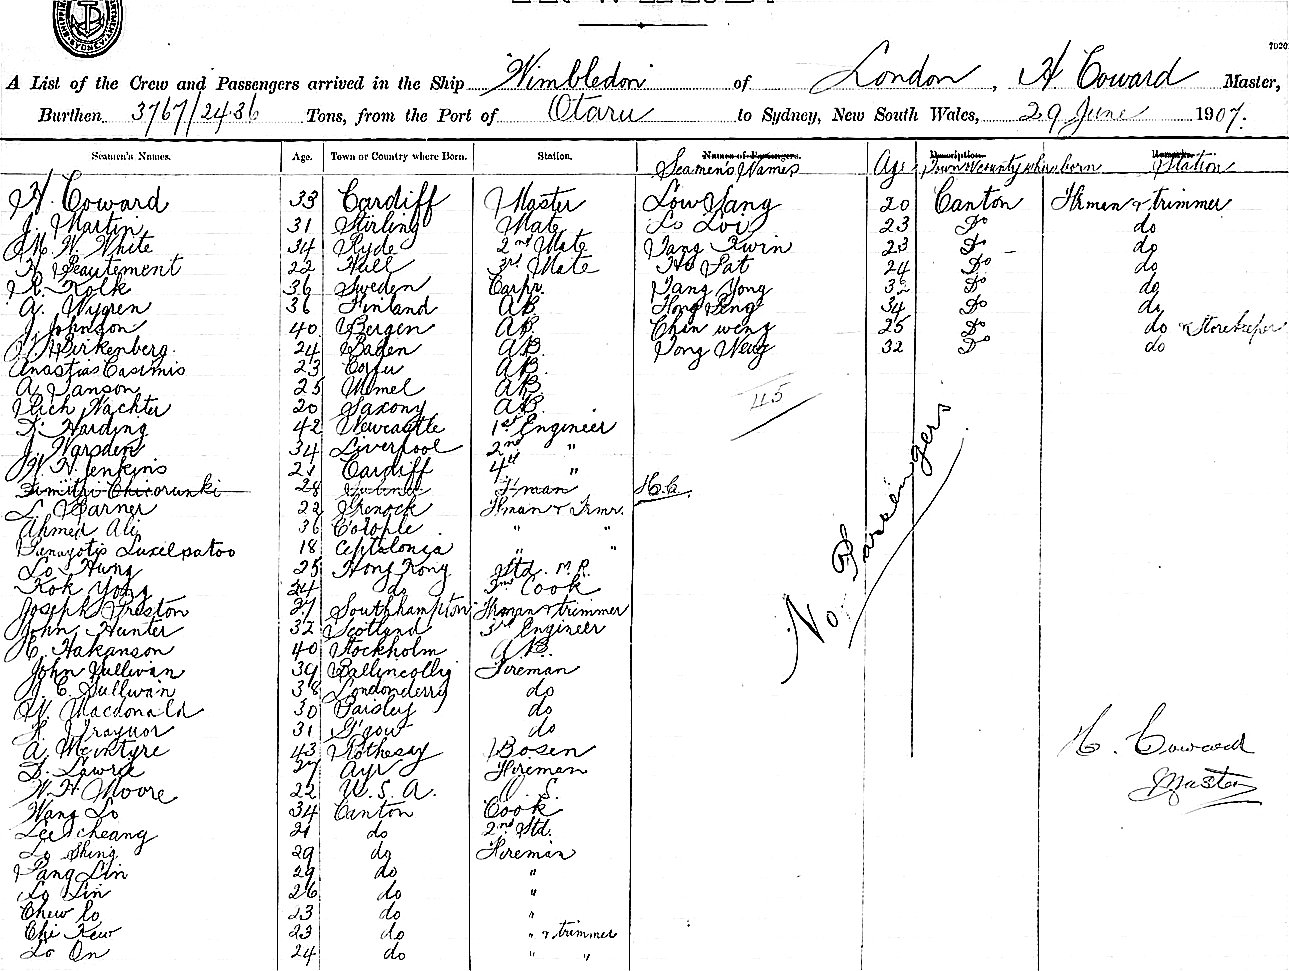 A List of the Crew and Passengers arrived in the Ship Wimbledon of London, H. Coward Master,
Burthen 3767/2436 Tons, from the Port of Otaru to Sydney, New South Wales, 29 June 1907.
Seamen's Names. Age. Town or Country where Born. Station. Names of Passengers. Seamen's Names Age Description. Town & county where born Remarks. Station
H. Coward 33 Cardiff Master Low Yang 20 Canton Fkman & trimmer
J. Martin 31 Stirling Mate Lo Loi 23 Do do
M. W. White 34 Ryde 2nd Mate Tang Kwin 23 Do do
Beautement 22 Hull 3rd Mate Ho Sat 24 Do do
Kolk 36 Sweden Carpr. Tang Yong 32 Do do
A. Wygren 36 Finland AB Hong Seng 34 Do do
J. Johnson 40 Bergen AB Chin weng 25 Do do & Storekeeper
Birkenberg. 24 Baden AB. Tong Weng 32 Do do
Anastias Casimis 23 Corfu AB
A. Janson 25 Memel AB 45
Rich Wachter 20 Saxony AB.
Harding 42 Newcastle 1st Engineer
J. Warsden 34 Liverpool 2nd "
W. H. Jenkins 21 Cardiff 4th "
Dimitri Chicorunki 28 Fman H.C.
L. Garner 22 Grenock Fkman & Trmr.
Ahmed Ali 36 Cotople " "
Panayotis Luxilpatoo 18 Cephalonia " "
Lo Hung 25 Hong Kong Std. M.R.
Kok Yong 24 do 2nd Cook
Joseph Preston 27 Southhampton Fkman & trimmer
John Hunter 32 Scotland 3rd Engineer
C. Hakanson 40 Stockholm A.B.
John Sullivan 39 Ballincollig Fireman
J. C. Sullivan 38 Londonderry do
W. Macdonald 30 Paisley do
Traynor 31 G'gow do
A. McIntyre 43 Rothesay Bosen
D. Lawrie 27 Ayr Fireman
W. H. Moore 22 U.S.A. O.S.
Wang Lo 34 Canton Cook
Lee cheang 21 do 2nd Std.
Lo Shing 29 do Fireman
Pang Lin 29 do "
Lo Lin 26 do "
Chew Lo 23 do "
Chi Kew 23 do " & trimmer
Lo On 24 do " "
No Passengers
H. Coward
Master